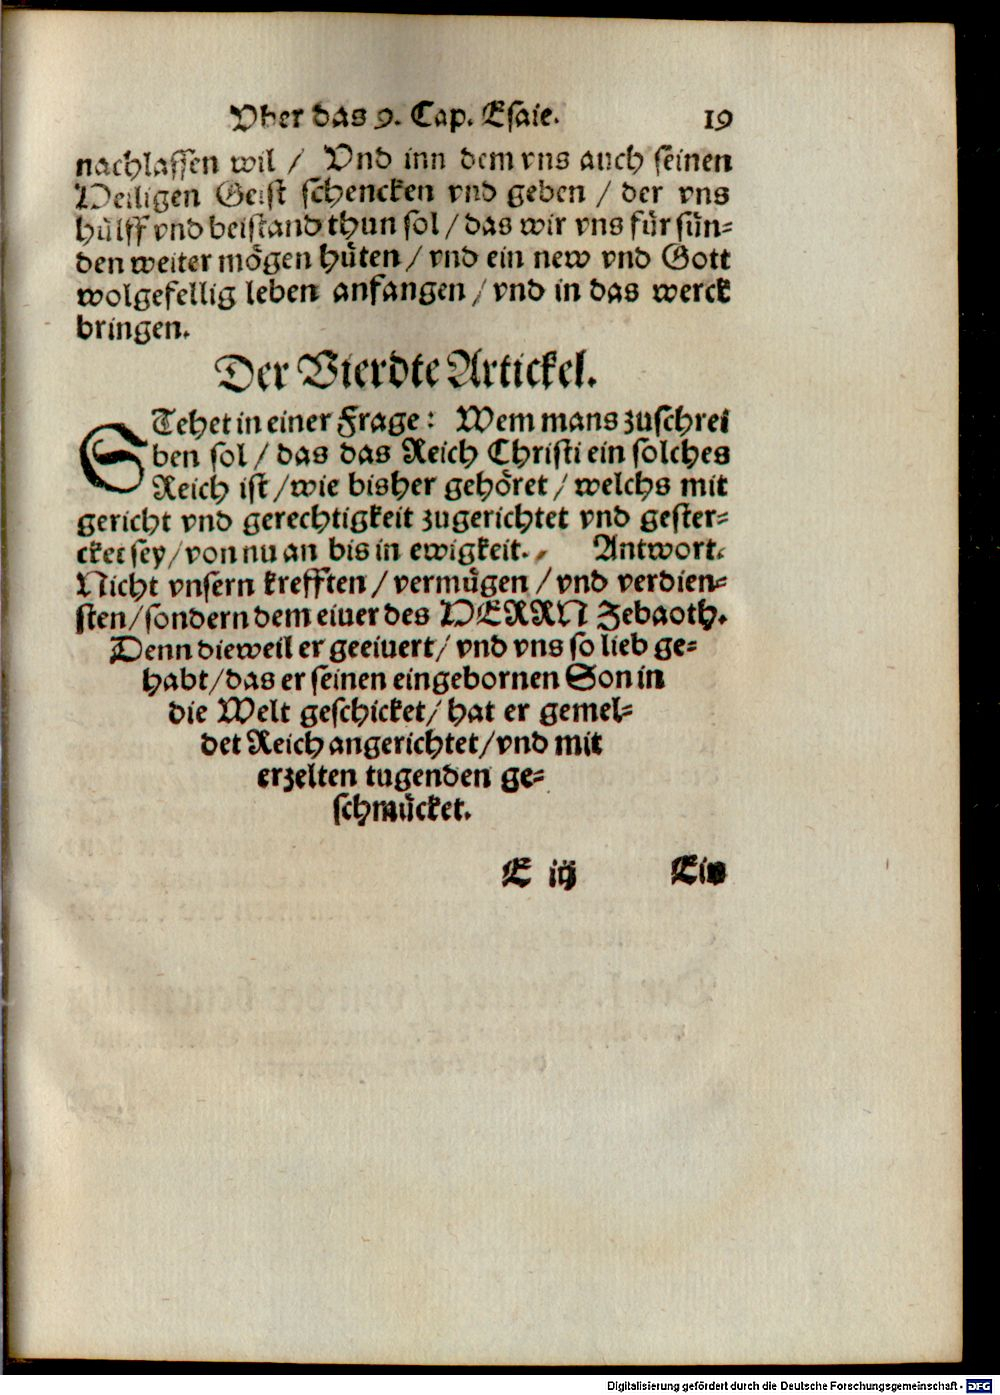 Vber das 9. Cap. Esaie. 19
nachlassen wil / Vnd inn dem vns auch seinen
Heiligen Geist schencken vnd geben / der vns
hülff vnd beistand thun sol / das wir vns für sün⸗
den weiter mögen hüten / vnd ein new vnd Gott
wolgefellig leben anfangen / vnd in das werck
bringen.
Der Vierdte Artickel.
STehet in einer Frage: Wem mans zuschrei
ben sol / das das Reich Christi ein solches
Reich ist / wie bisher gehöret / welchs mit
gericht vnd gerechtigkeit zugerichtet vnd gester⸗
cket sey / von nu an bis in ewigkeit. Antwort.
Nicht vnsern krefften / vermügen / vnd verdien⸗
sten / sondern dem eiuer des HERRN Zebaoth.
Denn dieweil er geeiuert / vnd vns so lieb ge⸗
habt / das er seinen eingebornen Son in
die Welt geschicket / hat er gemel⸗
det Reich angerichtet / vnd mit
erzelten tugenden ge⸗
schmücket.
E iij Ein
Digitalisierung gefördert durch die Deutsche Forschungsgemeinschaft - DFG